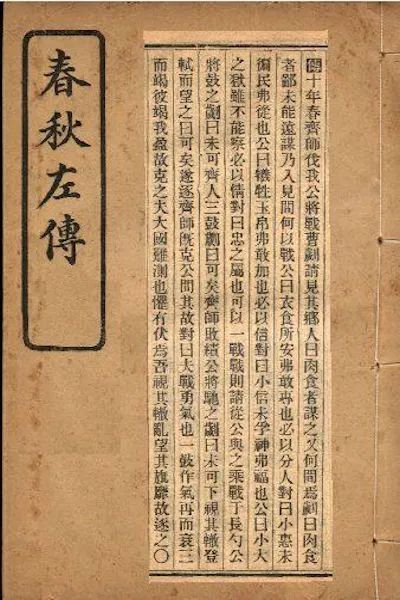 春秋左傳
傳十年春齊師伐我公將戰曹劌請見其鄉人曰肉食者謀之又何間焉劌曰肉食
者鄙未能遠謀乃入見問何以戰公曰衣食所安弗敢專也必以分人對曰小惠未
徧民弗從也公曰犧牲玉帛弗敢加也必以信對曰小信未孚神弗福也公曰小大
之獄雖不能察必以情對曰忠之屬也可以一戰戰則請從公與之乘戰于長勺公
將鼓之劌曰未可齊人三鼓劌曰可矣齊師敗績公將馳之劌曰未可下視其轍登
軾而望之曰可矣遂逐齊師既克公問其故對曰夫戰勇氣也一鼓作氣再而衰三
而竭彼竭我盈故克之夫大國難測也懼有伏焉吾視其轍亂望其旗靡故逐之〇